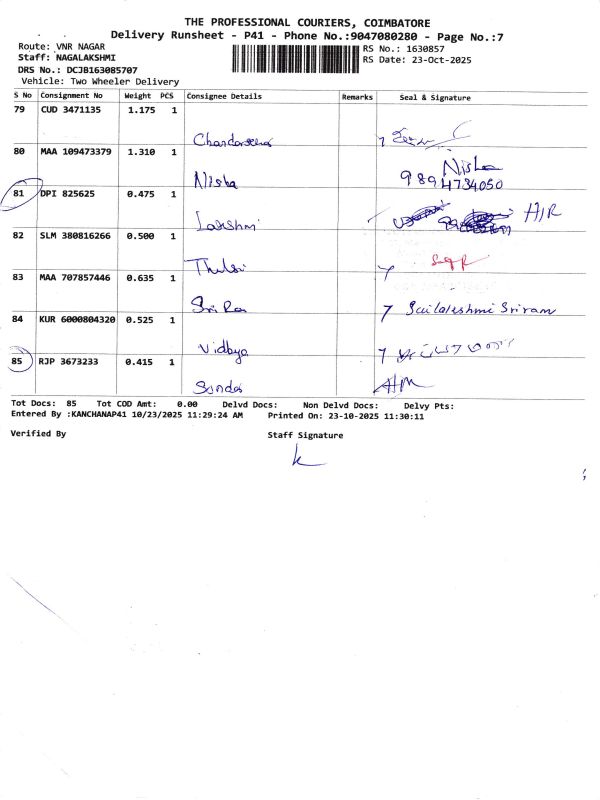 THE PROFESSIONAL COURIERS, COIMBATORE
Delivery Runsheet - P41 - Phone No.:9047080280 - Page No.:7
Route: VNR NAGAR RS No.: 1630857
Staff: NAGALAKSHMI RS Date: 23-Oct-2025
DRS No.: DCJB163085707
Vehicle: Two Wheeler Delivery
S No Consignment No Weight PCS Consignee Details Remarks Seal & Signature
79 CUD 3471135 1.175 1
80 MAA 109473379 1.310 1
Nisha Nisha
9894734050
81 DPI 825625 0.475 1
Lakshmi H/R
82 SLM 380816266 0.500 1
Thulsi
83 MAA 707857446 0.635 1
Sri Ram Sailakshmi Sriram
84 KUR 6000804320 0.525 1
Vidhya
85 RJP 3673233 0.415 1
Tot Docs: 85 Tot COD Amt: 0.00 Delvd Docs: Non Delvd Docs: Delvy Pts:
Entered By :KANCHANAP41 10/23/2025 11:29:24 AM Printed On: 23-10-2025 11:30:11
Verified By Staff Signature